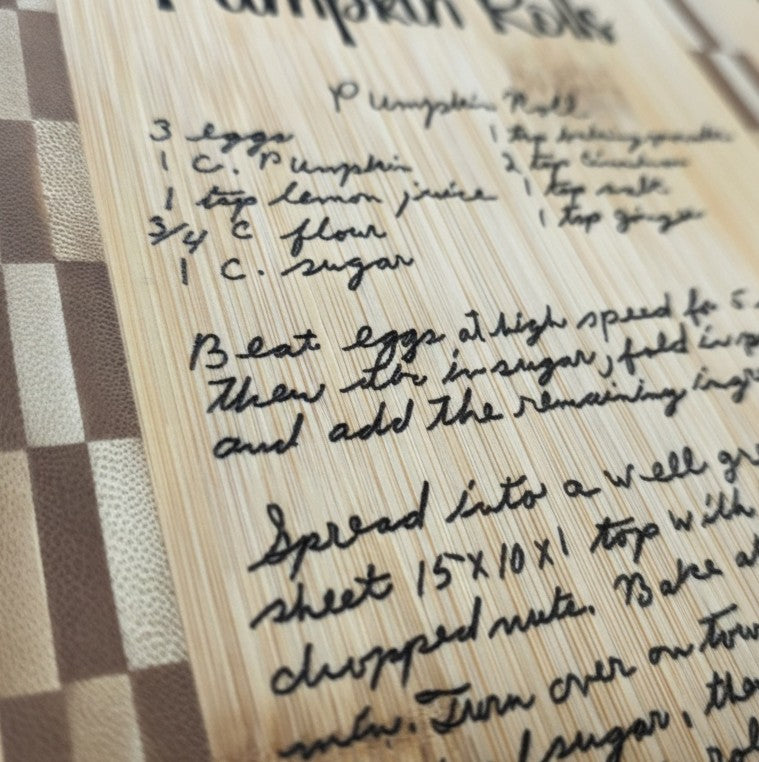 Pumpkin Rolls
Pumpkin Roll
3 eggs
1 C. Pumpkin
1 tsp lemon juice
3/4 C flour
1 C. sugar
1 tsp baking powder
2 tsp cinnamon
1 tsp salt
1 tsp ginger
Beat eggs at high speed for 5
then stir in sugar, fold in
and add the remaining
Spread into a well
sheet 15x10x1 top with
chopped nuts. Bake at
min. Turn over on
sugar,